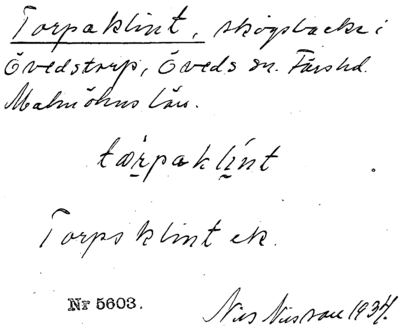 Torpaklint, skogsbacke i
Övedstorp, Öveds sn. Färs hd.
Malmöhus län.
tærpaklínt
Torps klint ek.
Nr 5603.
Nils Nilsson 1934.